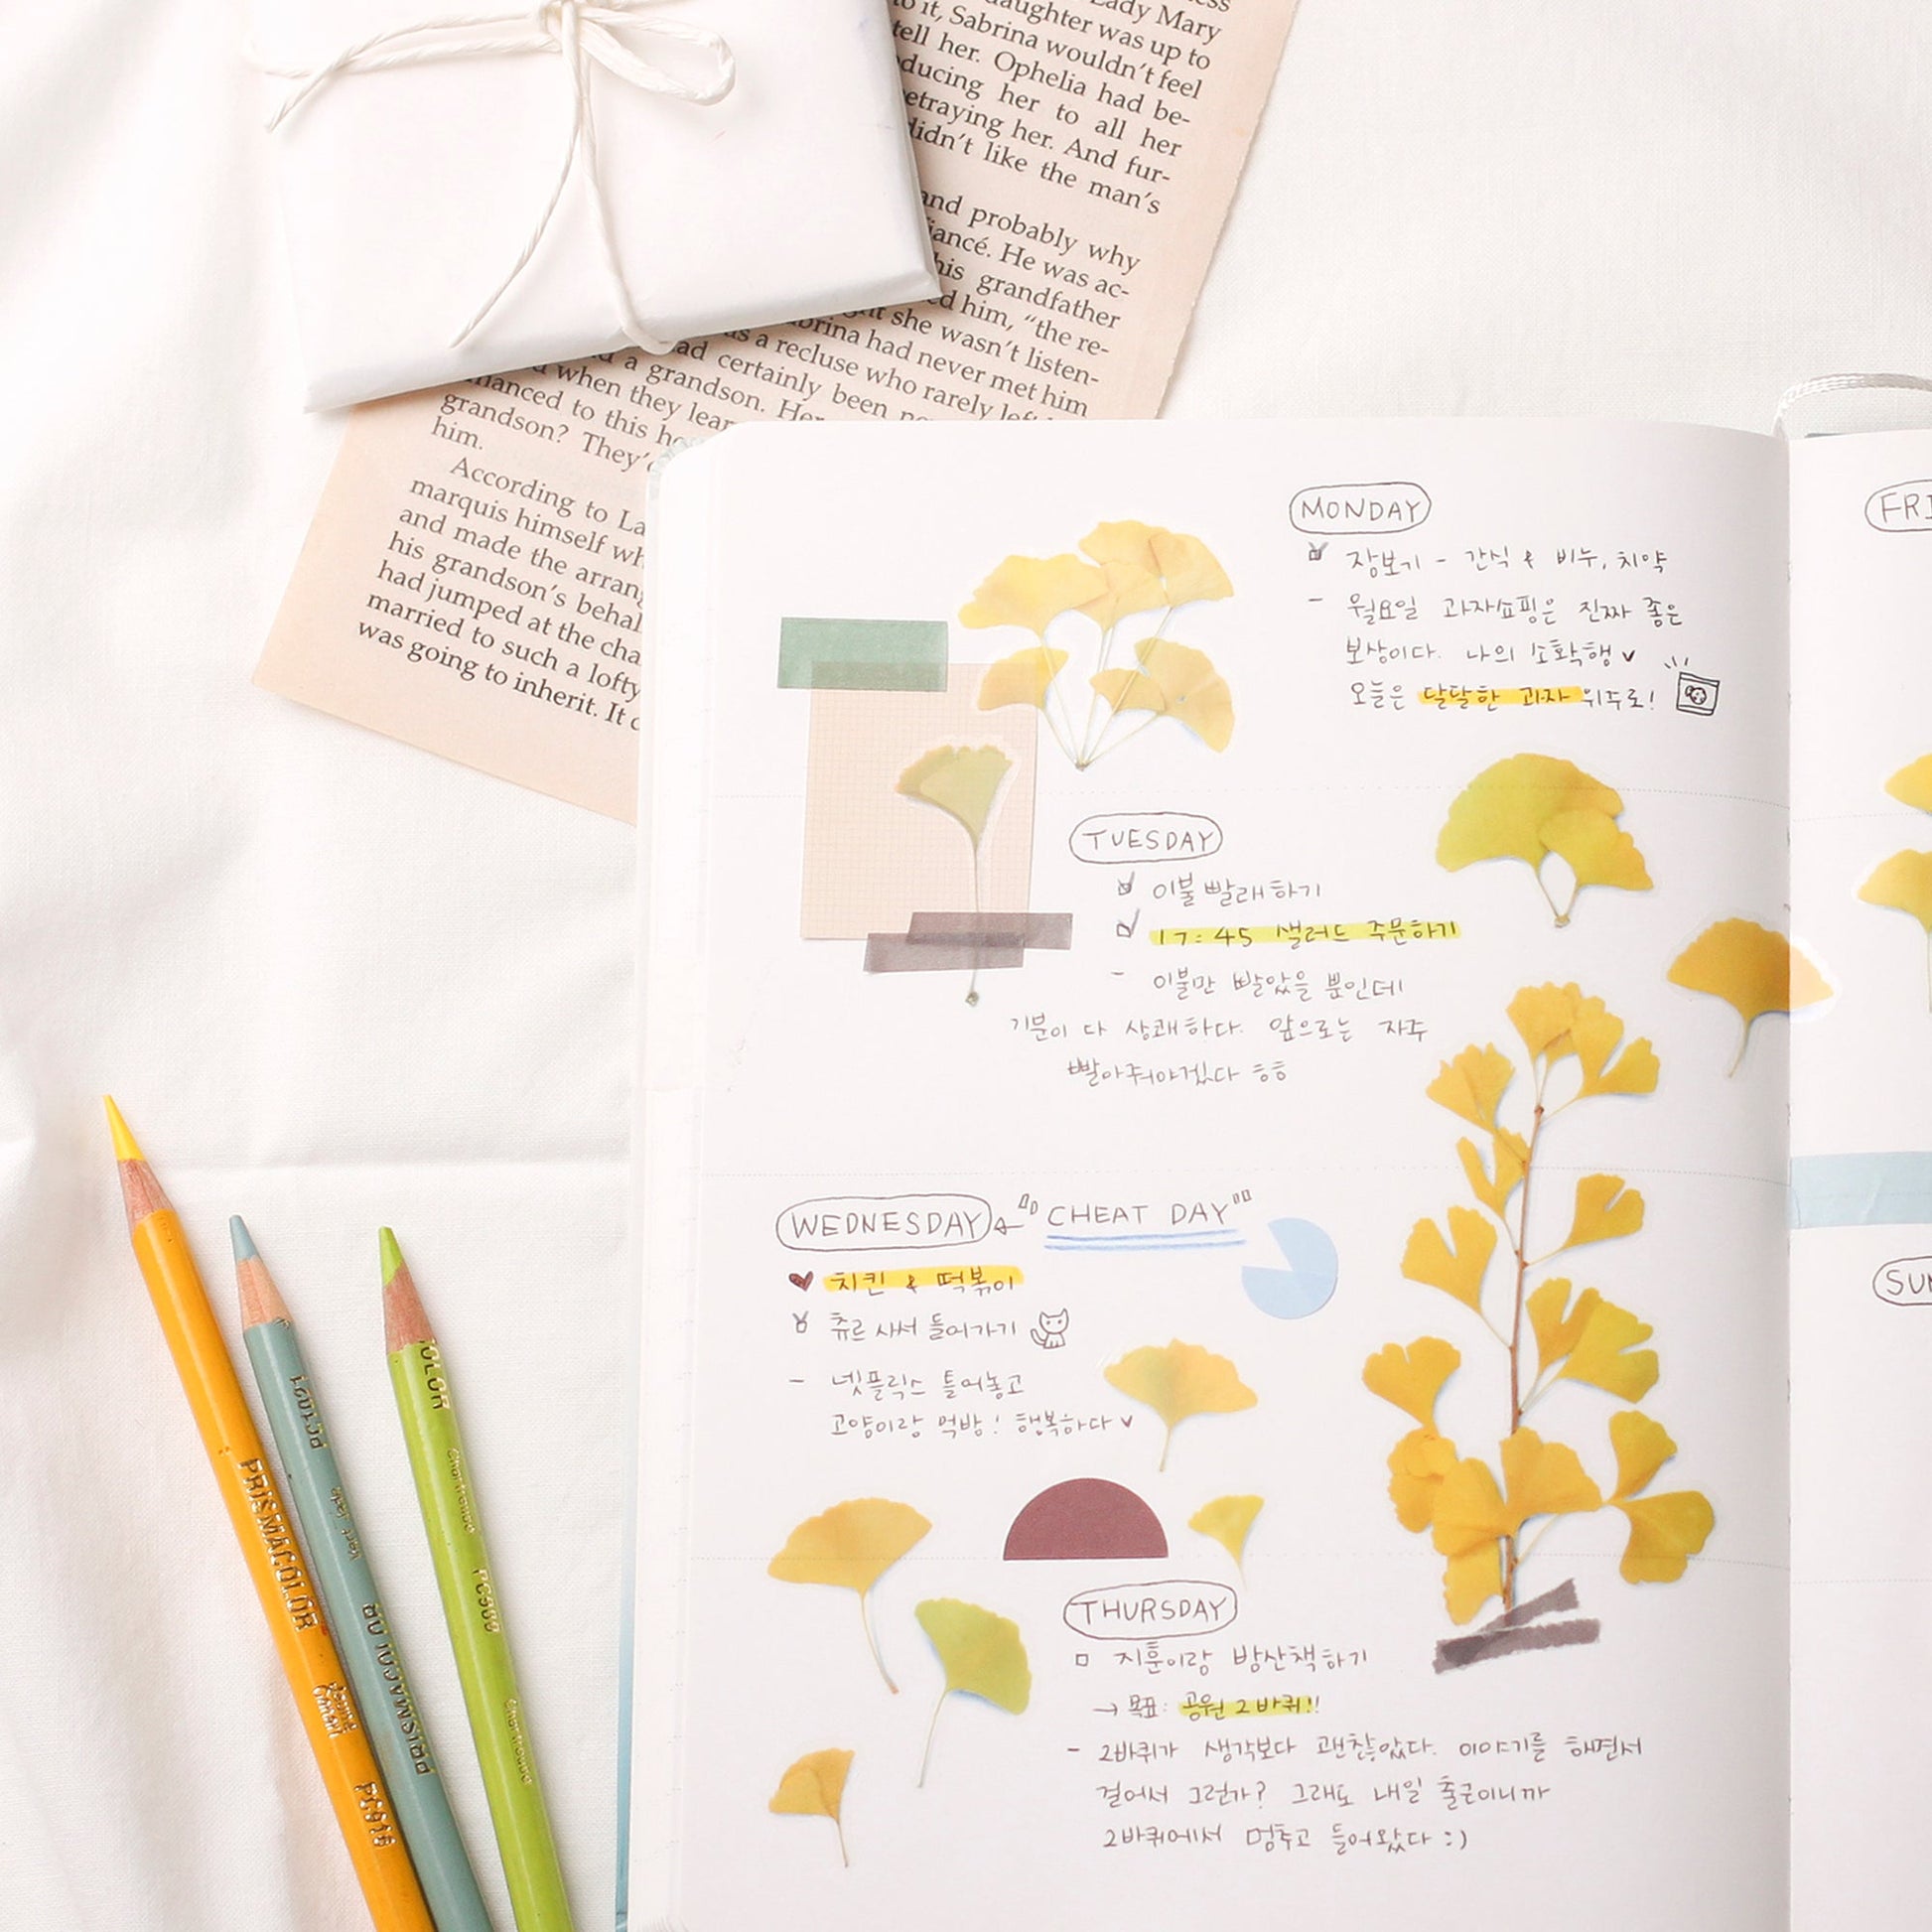 Lady Mary
daughter was up to
to it, Sabrina wouldn't feel
tell her. Ophelia had be-
ducing her to all her
etraying her. And fur-
didn't like the man's
and probably why
iancé. He was ac-
his grandfather
ed him, "the re-
she wasn't listen-
brina had never met him
as a recluse who rarely
ad certainly been
a grandson. Her
when they lear
hanced to this
grandson? They'
him.
According to La
marquis himself wh
and made the arran
his grandson's behal
had jumped at the cha
married to such a lofty
was going to inherit. It
MONDAY
장보기 - 간식 & 비누, 치약
- 월요일 과자쇼핑은 진짜 좋은
보상이다. 나의 소확행
오늘은 달달한 과자 위주로!
TUESDAY
이불 빨래하기
17:45 샐러드 주문하기
- 이불만 빨았을 뿐인데
기분이 다 상쾌하다. 앞으로는 자주
빨아줘야겠다 ㅎㅎ
WEDNESDAY ← "CHEAT DAY"
치킨 & 떡볶이
츄르 사서 들어가기
- 넷플릭스 틀어놓고
고양이랑 먹방! 행복하다
THURSDAY
지훈이랑 밤산책하기
→ 목표: 공원 2바퀴!!
- 2바퀴가 생각보다 괜찮았다. 이야기를 하면서
걸어서 그런가? 그래도 내일 출근이니까
2바퀴에서 멈추고 들어왔다 :)
FRI
SUN
PRISMACOLOR
PC916
PRISMACOLOR
PC1087
Chartreuse
PC989
Chartreuse